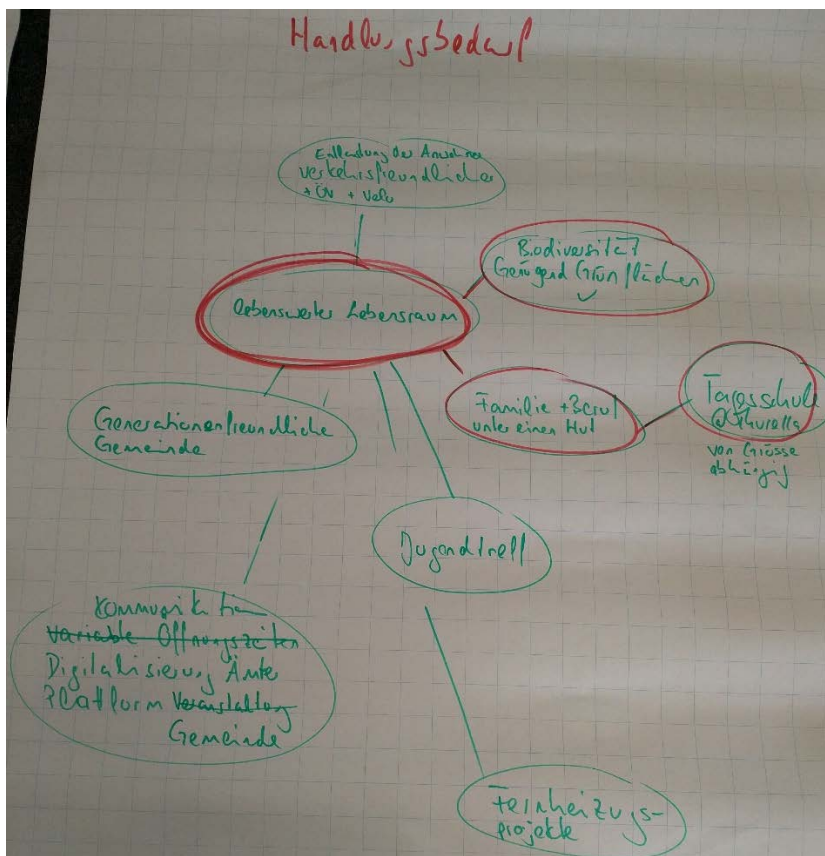 Handlungsbedarf
Entlastung der Anwohner
verkehrsfreundlicher
+ ÖV + Velo
Biodiversität
Genügend Grünflächen
lebenswerter Lebensraum
Familie + Beruf
unter einen Hut
Tagesschule
@Thurella
von Grösse
abhängig
Generationenfreundliche
Gemeinde
Jugendtreff
Kommunikation
Variable Öffnungszeiten
Digitalisierung Ämter
Plattform Veranstaltung
Gemeinde
Fernheizungs-
projekte